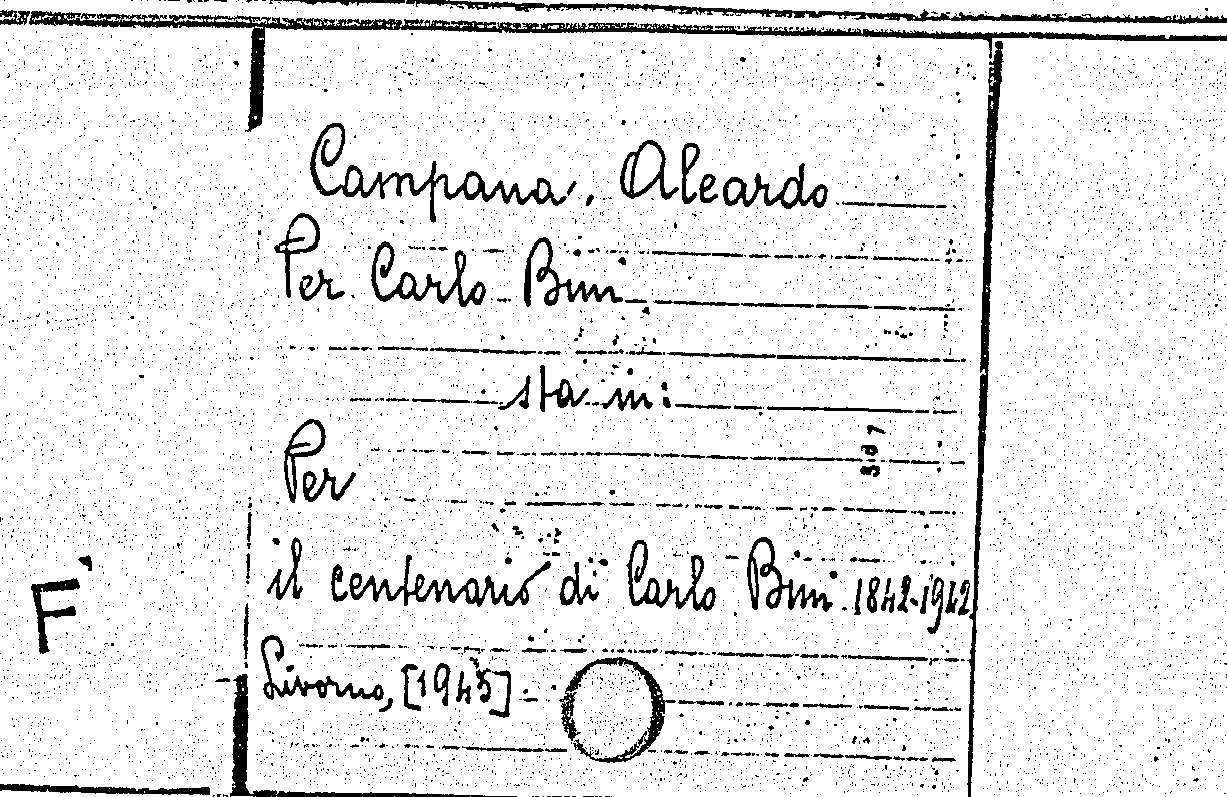 Campana, Aleardo
Per Carlo Bini
sta in:
Per
il centenario di Carlo Bini. 1842-1942
Livorno, [1945] -
F